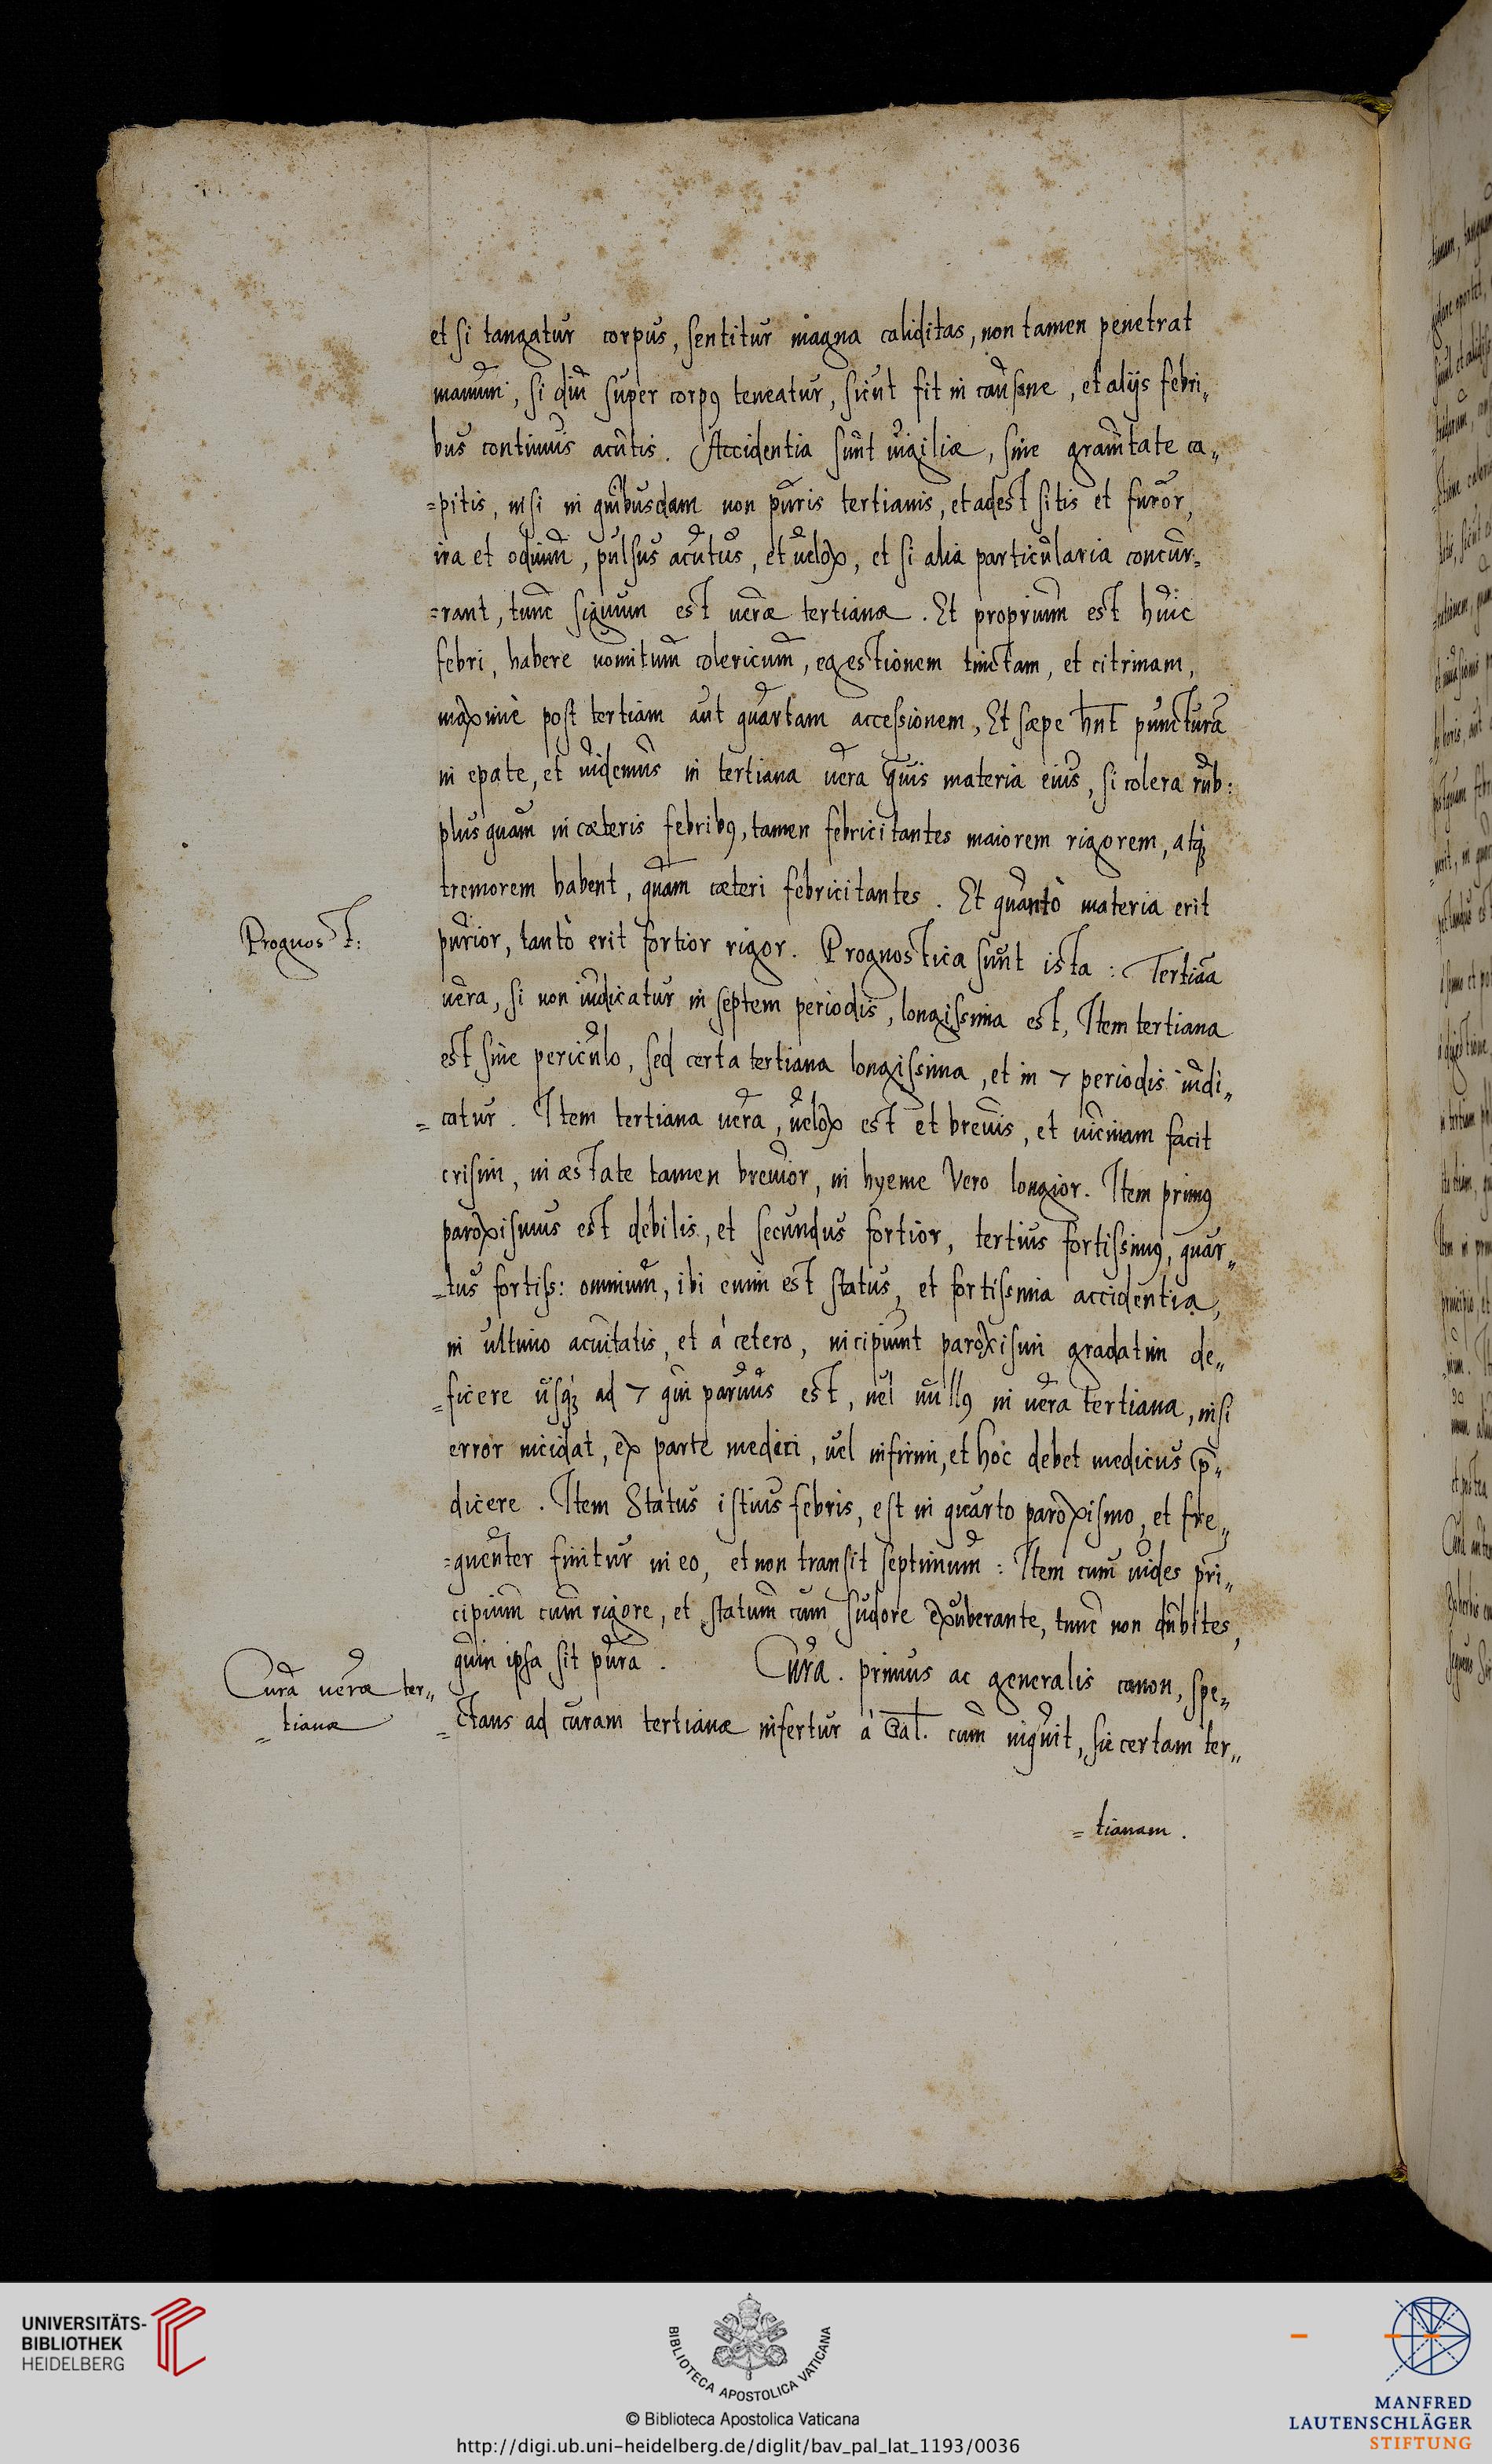 et si tangatur corpus, sentitur magna caliditas, non tamen penetrat
manum, si diu super corpꝰ teneatur, sicut fit in causone, et alijs febri„
bus continuis acutis. Accidentia sunt vigiliæ, sine grauitate ca„
=pitis, nisi in quibusdam non puris tertianis, et adest sitis et furor,
ira et odium, pulsus acutus, et uelox, et si alia particularia concur=
=rant, tunc signum est ueræ tertianæ. Et proprium est huic
febri, habere uomitum colericum, egestionem tinctam, et citrinam,
maximè post tertiam aut quartam accessionem, Et sæpe hn̄t puncturā
in epate, et uidemus in tertiana uera quis materia eius, si colera rub:
plus quam in cæteris febribꝰ, tamen febricitantes maiorem rigorem, atqꝫ
tremorem habent, quam cæteri febricitantes. Et quantò materia erit
Prognost:
purior, tantò erit fortior rigor. Prognostica sunt ista: Tertiāa
uera, si non iudicatur in septem periodis, longissima est, Item tertiana
est sine periculo, sed certa tertiana longissima, et in 7 periodis iudi„
=catur. Item tertiana uera, uelox est et breuis, et uicinam facit
crisim, in æstate tamen breuior, in hyeme Vero longior. Item primꝰ
paroxismus est debilis, et secundus fortior, tertius fortissimꝰ, quar„
=tus fortiss: omnium, ibi enim est status, et fortissima accidentia,
in ultimo acuitatis, et à cetero, incipiunt paroxismi gradatim de„
=ficere usqꝫ ad 7 qui paruus est, uel nullꝰ in uera tertiana, nisi
error incidat, ex parte medici, uel infirmi, et hoc debet medicus p̄„
dicere. Item Status istius febris, est in quarto paroxismo, et fre„
=quenter finitur in eo, et non transit septimum: Item cum uides pri„
cipium cum rigore, et statum cum sudore exuberante, tunc non dubites,
quin ipsa sit pura. Cura. primus ac generalis canon, spe„
Cura ueræ ter„
=tianæ
=ctans ad curam tertianæ infertur à Gal. cum inquit, sic certam ter„
=tianam.
UNIVERSITÄTS-
BIBLIOTHEK
HEIDELBERG
BIBLIOTECA APOSTOLICA VATICANA
© Biblioteca Apostolica Vaticana
http://digi.ub.uni-heidelberg.de/diglit/bav_pal_lat_1193/0036
MANFRED
LAUTENSCHLÄGER
STIFTUNG